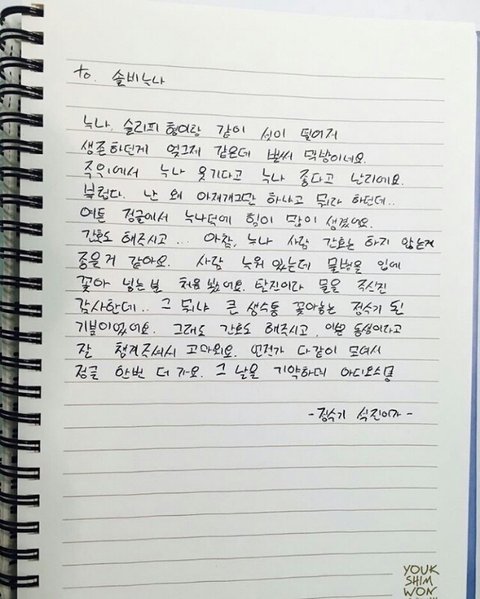 to. 솔비누나
누나. 슬리피 형이랑 같이 셋이 떨어져
생존하던게 엊그제 같은데 벌써 막방이네요.
주위에서 누나 웃기다고 누나 좋다고 난리에요.
부럽다. 난 왜 아재개그만 하냐고 뭐라 하던데..
여튼 정글에서 누나덕에 힘이 많이 생겼어요.
간호도 해주시고... 아참, 누나 사람 간호는 하지 않는게
좋을거 같아요. 사람 누워 있는데 물병을 입에
꽂아 넣는 분 처음 봤어요. 탄진이라 물을 주신건
감사한데.. 그 뭐냐 큰 생수통 꽂아놓는 정수기 된
기분이었어요. 그래도 간호도 해주시고, 이쁜 동생이라고
잘 챙겨주셔서 고마워요. 언젠가 다같이 모여서
정글 한번 더 가요. 그 날을 기약하며 아디오스
- 정수기 석진이가 -
YOUK
SHIM
WON